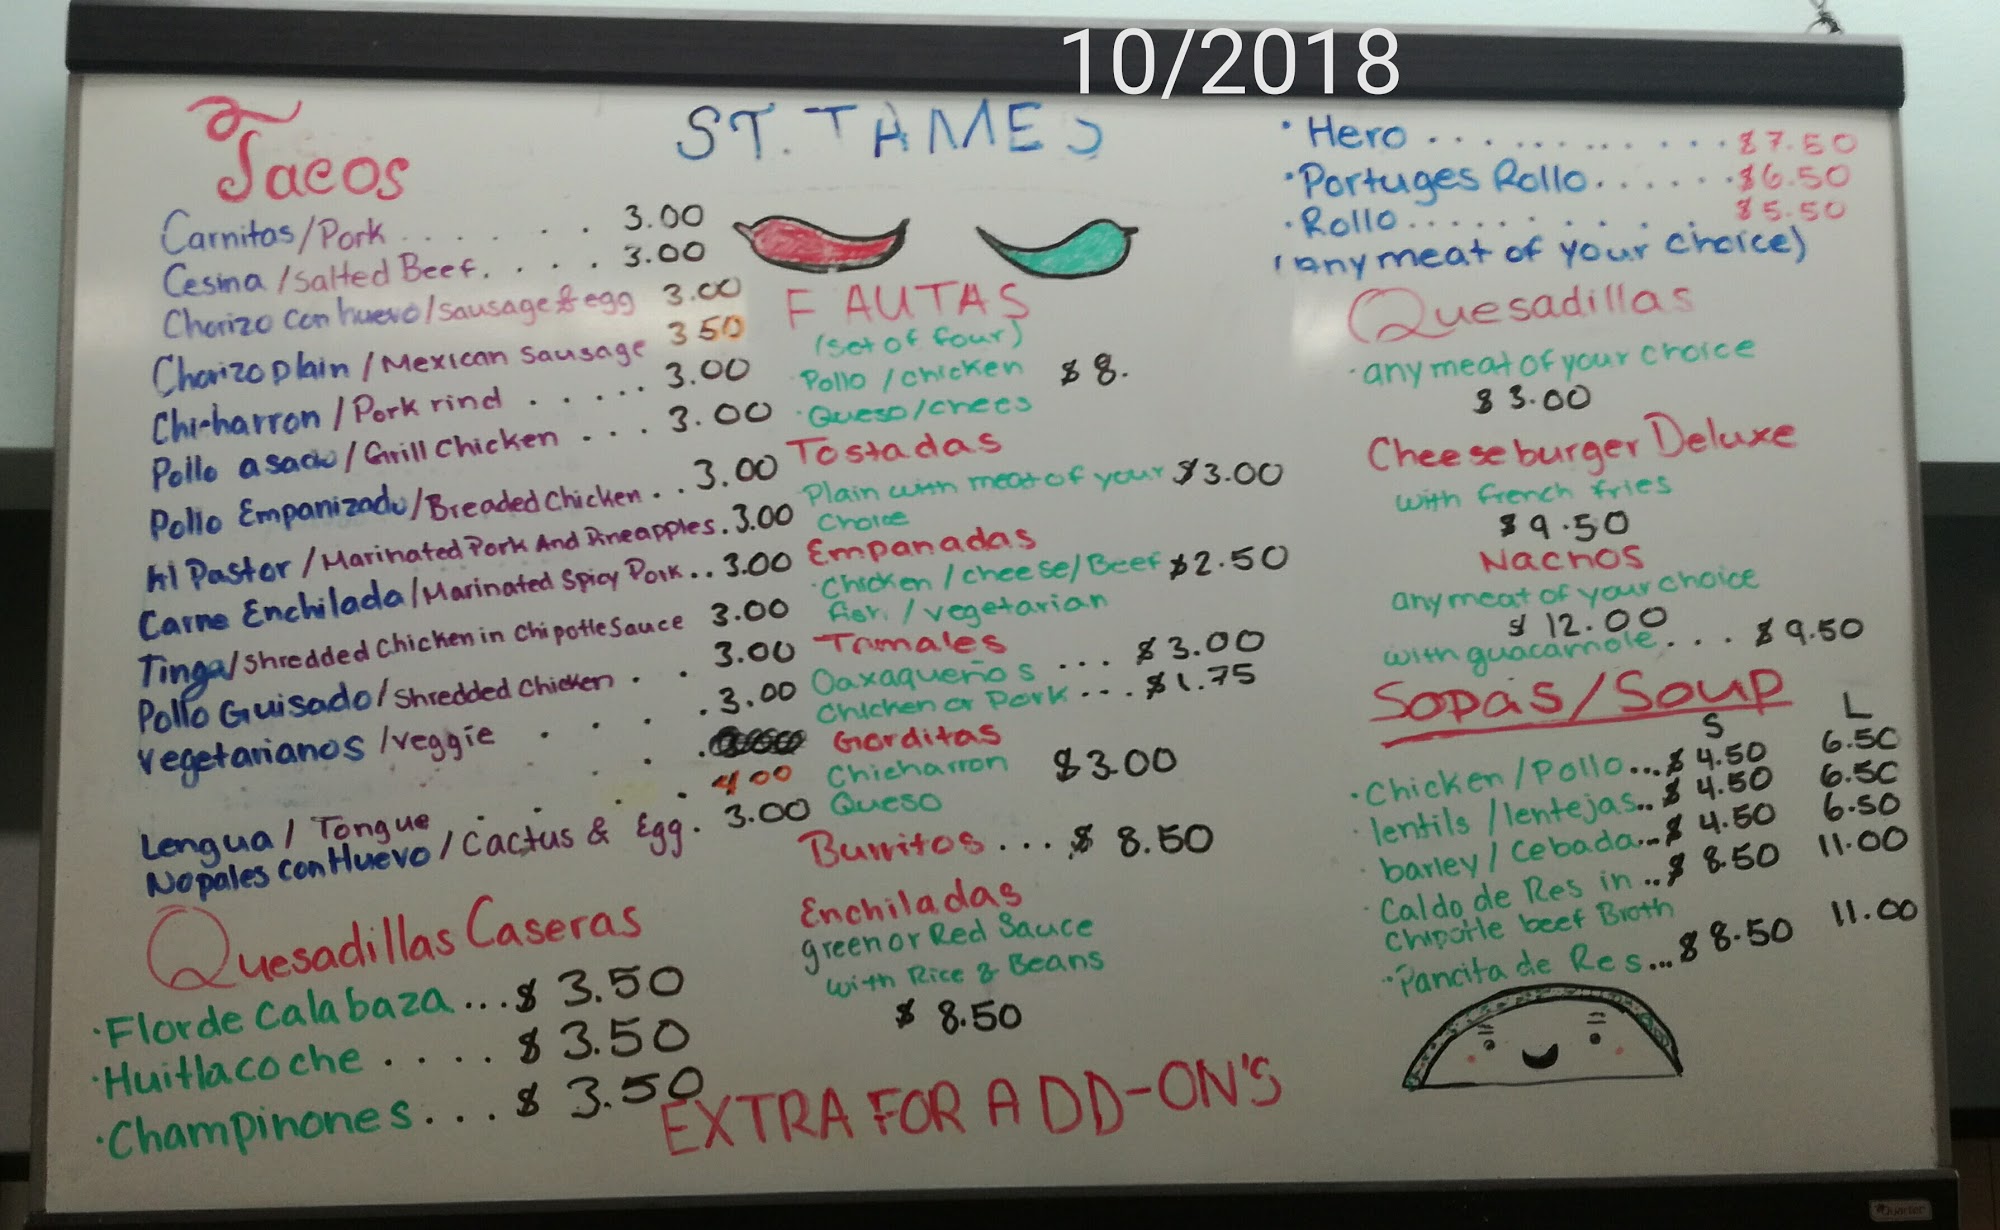 10/2018
ST. TAMES
Tacos
Carnitas/Pork . . . . . . 3.00
Cesina/Salted Beef. . . . 3.00
Chorizo con huevo/sausage & egg 3.00
Chorizo plain/Mexican Sausage 3 50
Chicharron/Pork rind . . . . . 3.00
Pollo asado/Grill Chicken . . . 3.00
Pollo Empanizado/Breaded Chicken . . 3.00
Al Pastor/Marinated Pork And Pineapples . 3.00
Carne Enchilada/Marinated Spicy Pork . . 3.00
Tinga/Shredded Chicken in Chipotle Sauce 3.00
Pollo Guisado/Shredded Chicken . . 3.00
Vegetarianos/veggie . . . . 3.00
Lengua/Tongue . . . . 4 00
Nopales con Huevo/Cactus & Egg . 3.00
Quesadillas Caseras
·Flor de Calabaza ...$ 3.50
·Huitlacoche . . . . $ 3.50
·Champinones . . . $ 3.50
F AUTAS
(set of four)
Pollo/chicken $ 8.
·Queso/chees
Tostadas
Plain with meat of your $3.00
Choice
Empanadas
·Chicken/cheese/Beef $2.50
fish/vegetarian
Tamales
Oaxaqueños ... $3.00
Chicken or Pork ... $1.75
Gorditas
Chicharron $3.00
Queso
Burritos ... $ 8.50
Enchiladas
green or Red Sauce
with Rice & Beans
$ 8.50
EXTRA FOR ADD-ON'S
·Hero . . . . . . . . . . . . $7.50
·Portuges Rollo. . . . . . $6.50
·Rollo . . . . . . . . . . $5.50
(any meat of your choice)
Quesadillas
·any meat of your choice
$ 3.00
Cheeseburger Deluxe
with french fries
$ 9.50
Nachos
any meat of your choice
$ 12.00
with guacamole. . . $9.50
Sopas/Soup
S L
·Chicken/Pollo...$ 4.50 6.50
·lentils/lentejas..$ 4.50 6.50
·barley/Cebada...$ 4.50 6.50
·Caldo de Res in ..$ 8.50 11.00
Chipotle beef Broth
·Pancita de Res...$ 8.50 11.00
Quartet